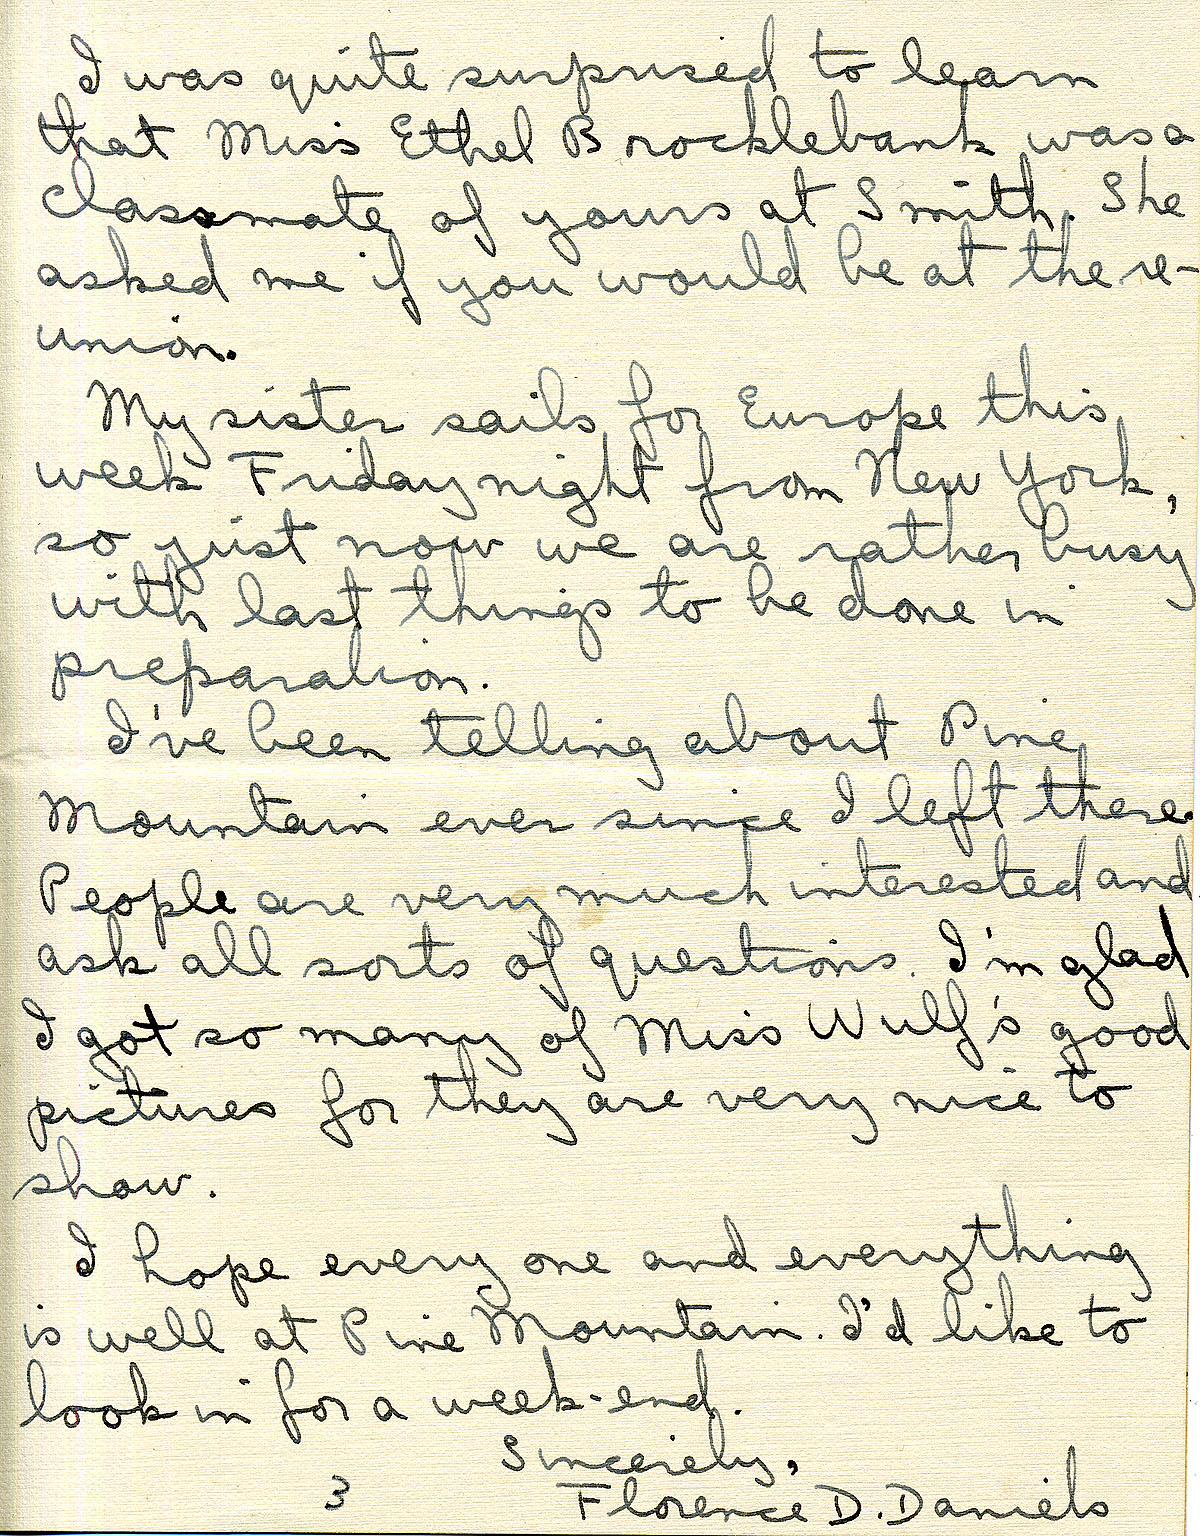 I was quite surprised to learn
that Miss Ethel Brocklebank was a
classmate of yours at Smith. She
asked me if you would be at the re-
union.
My sister sails for Europe this
week Friday night from New York,
so just now we are rather busy
with last things to be done in
preparation.
I've been telling about Pine
Mountain ever since I left there.
People are very much interested and
ask all sorts of questions. I'm glad
I got so many of Miss Wulf's good
pictures for they are very nice to
show.
I hope every one and everything
is well at Pine Mountain. I'd like to
look in for a week-end.
Sincerely,
3 Florence D. Daniels